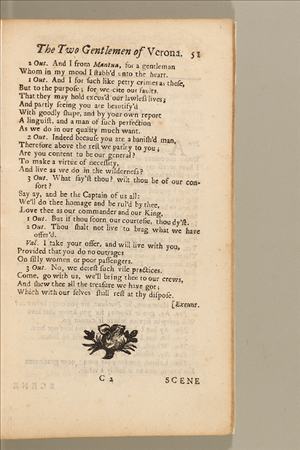 The Two Gentlemen of Verona. 51
2 Out. And I from Mantua, for a gentleman
Whom in my mood I stabb'd unto the heart.
1 Out. And I for such like petty crimes as these,
But to the purpose; for we cite our faults,
That they may hold excus'd our lawless lives;
And partly seeing you are beautify'd
With goodly shape, and by your own report
A linguist, and a man of such perfection
As we do in our quality much want.
2 Out. Indeed because you are a banish'd man,
Therefore above the rest we parley to you;
Are you content to be our general?
To make a virtue of necessity,
And live as we do in the wilderness?
3 Out. What say'st thou? wilt thou be of our con-
sort?
Say ay, and be the Captain of us all:
We'll do thee homage and be rul'd by thee,
Love thee as our commander and our King.
1 Out. But if thou scorn our courtesie, thou dy'st.
2 Out. Thou shalt not live to brag what we have
offer'd.
Val. I take your offer, and will live with you,
Provided that you do no outrages
On silly women or poor passengers.
3 Out. No, we detest such vile practices.
Come, go with us, we'll bring thee to our crews,
And shew thee all the treasure we have got;
Which with our selves shall rest at thy dispose.
[Exeunt.
C 2 SCENE